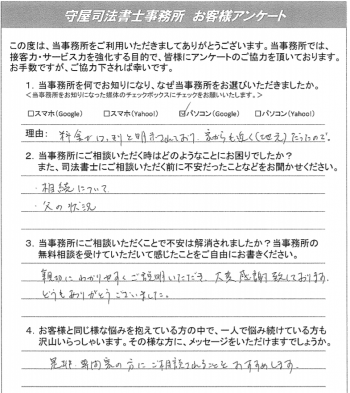 守屋司法書士事務所 お客様アンケート
この度は、当事務所をご利用いただきましてありがとうございます。当事務所では、
接客力・サービス力を強化する目的で、皆様にアンケートのご協力を頂いております。
お手数ですが、ご協力下されば幸いです。
1. 当事務所を何でお知りになり、なぜ当事務所をお選びいただきましたか。
＜当事務所をお知りになった媒体のチェックボックスにチェックをお願いします。＞
□スマホ(Google) □スマホ(Yahoo!) ☑パソコン(Google) □パソコン(Yahoo!)
理由: 料金がはっきりと明示されており、家からも近く(地元)だったので。
2. 当事務所にご相談いただく時はどのようなことにお困りでしたか？
また、司法書士にご相談いただく前に不安だったことなどをお聞かせください。
・相続について
・父の状況
3. 当事務所にご相談いただくことで不安は解消されましたか？当事務所の
無料相談を受けていただいて感じたことをご自由にお書きください。
親切にわかりやすくご説明いただき、大変感謝致しております。
どうもありがとうございました。
4. お客様と同じ様な悩みを抱えている方の中で、一人で悩み続けている方も
沢山いらっしゃいます。その様な方に、メッセージをいただけますでしょうか。
是非 専門家の方にご相談されることをおすすめします。